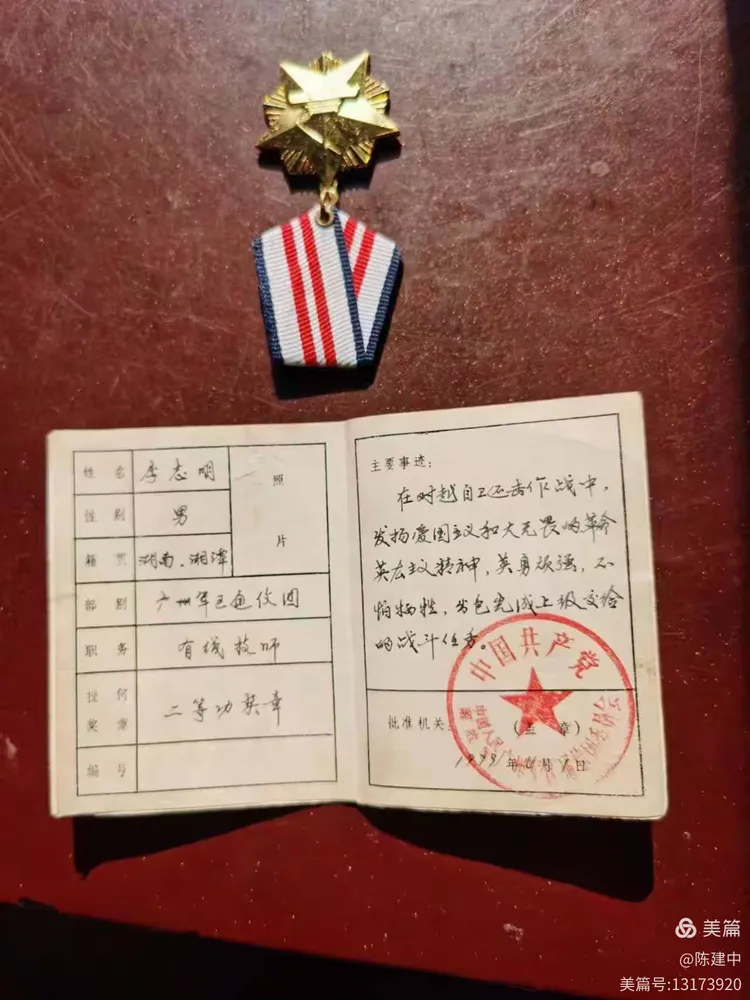 姓名 李志明
性别 男
籍贯 湖南.湘潭
部别 广州军区通信团
职务 有线技师
授何奖章 二等功奖章
编号
照片
主要事迹：
在对越自卫还击作战中，
发扬爱国主义和大无畏的革命
英雄主义精神，英勇顽强，不
怕牺牲，出色完成上级交给
的战斗任务。
批准机关：
(盖章)
1979年4月1日
中国共产党
美篇
@陈建中
美篇号:13173920